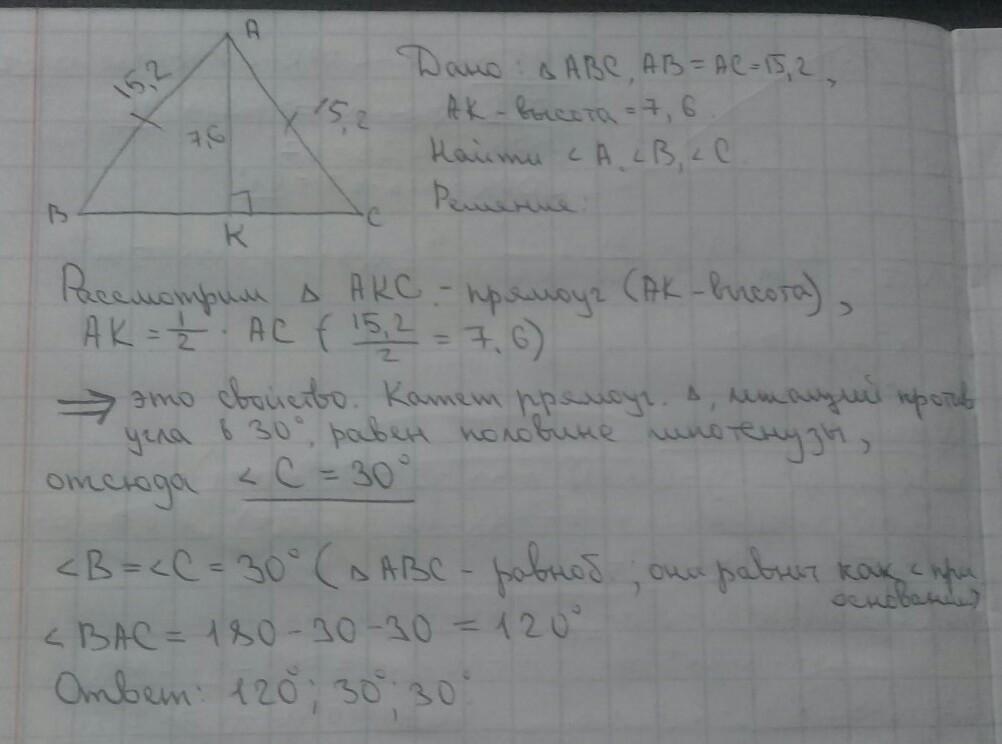 A
15,2
15,2
7,6
B
K
C
Дано: △ ABC, AB = AC = 15,2,
AK - высота = 7,6.
Найти < A, < B, < C
Решение:
Рассмотрим △ AKC - прямоуг (AK - высота),
AK = 1/2 · AC ( 15,2/2 = 7,6)
⇒ это свойство. Катет прямоуг. △, лежащий против
угла в 30°, равен половине гипотенузы,
отсюда < C = 30°
< B = < C = 30° ( △ ABC - равноб, они равны как < при
основании)
< BAC = 180 - 30 - 30 = 120°
Ответ: 120°; 30°; 30°